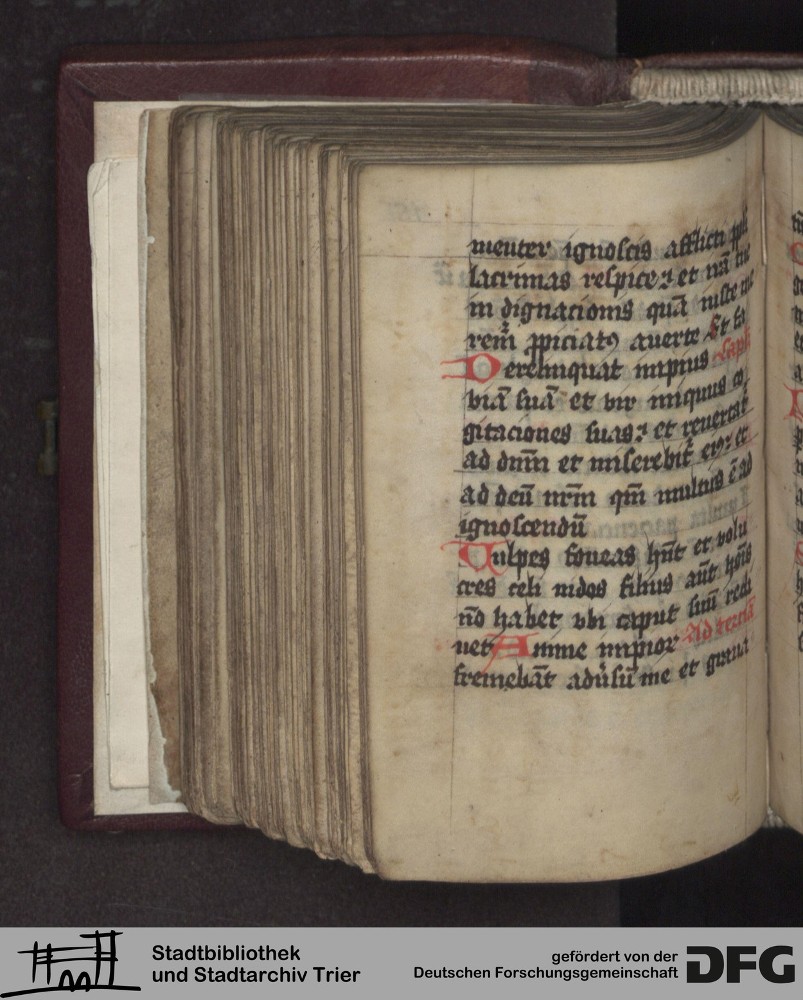 menter ignoscis afflicti ppli
lacrimas respice: et irā tue
in dignacionis quā iuste me
rem̄ ppiciatꝰ auerte Et fa
Derelinquat impius Capl̄
viā suā et vir iniquus co
gitaciones suas: et reuertat̄
ad dnm̄ et miserebit̄ eiꝰ: et
ad deū nrm̄ qm̄ multus ē ad
ignoscendū
Uulpes foueas hn̄t et volu
cres celi nidos filius aūt hoīs
nō habet vbi caput suū recli
net Anime impior Ad terciā
fremebāt adūsū me et graua
Stadtbibliothek
und Stadtarchiv Trier
gefördert von der
Deutschen Forschungsgemeinschaft
DFG